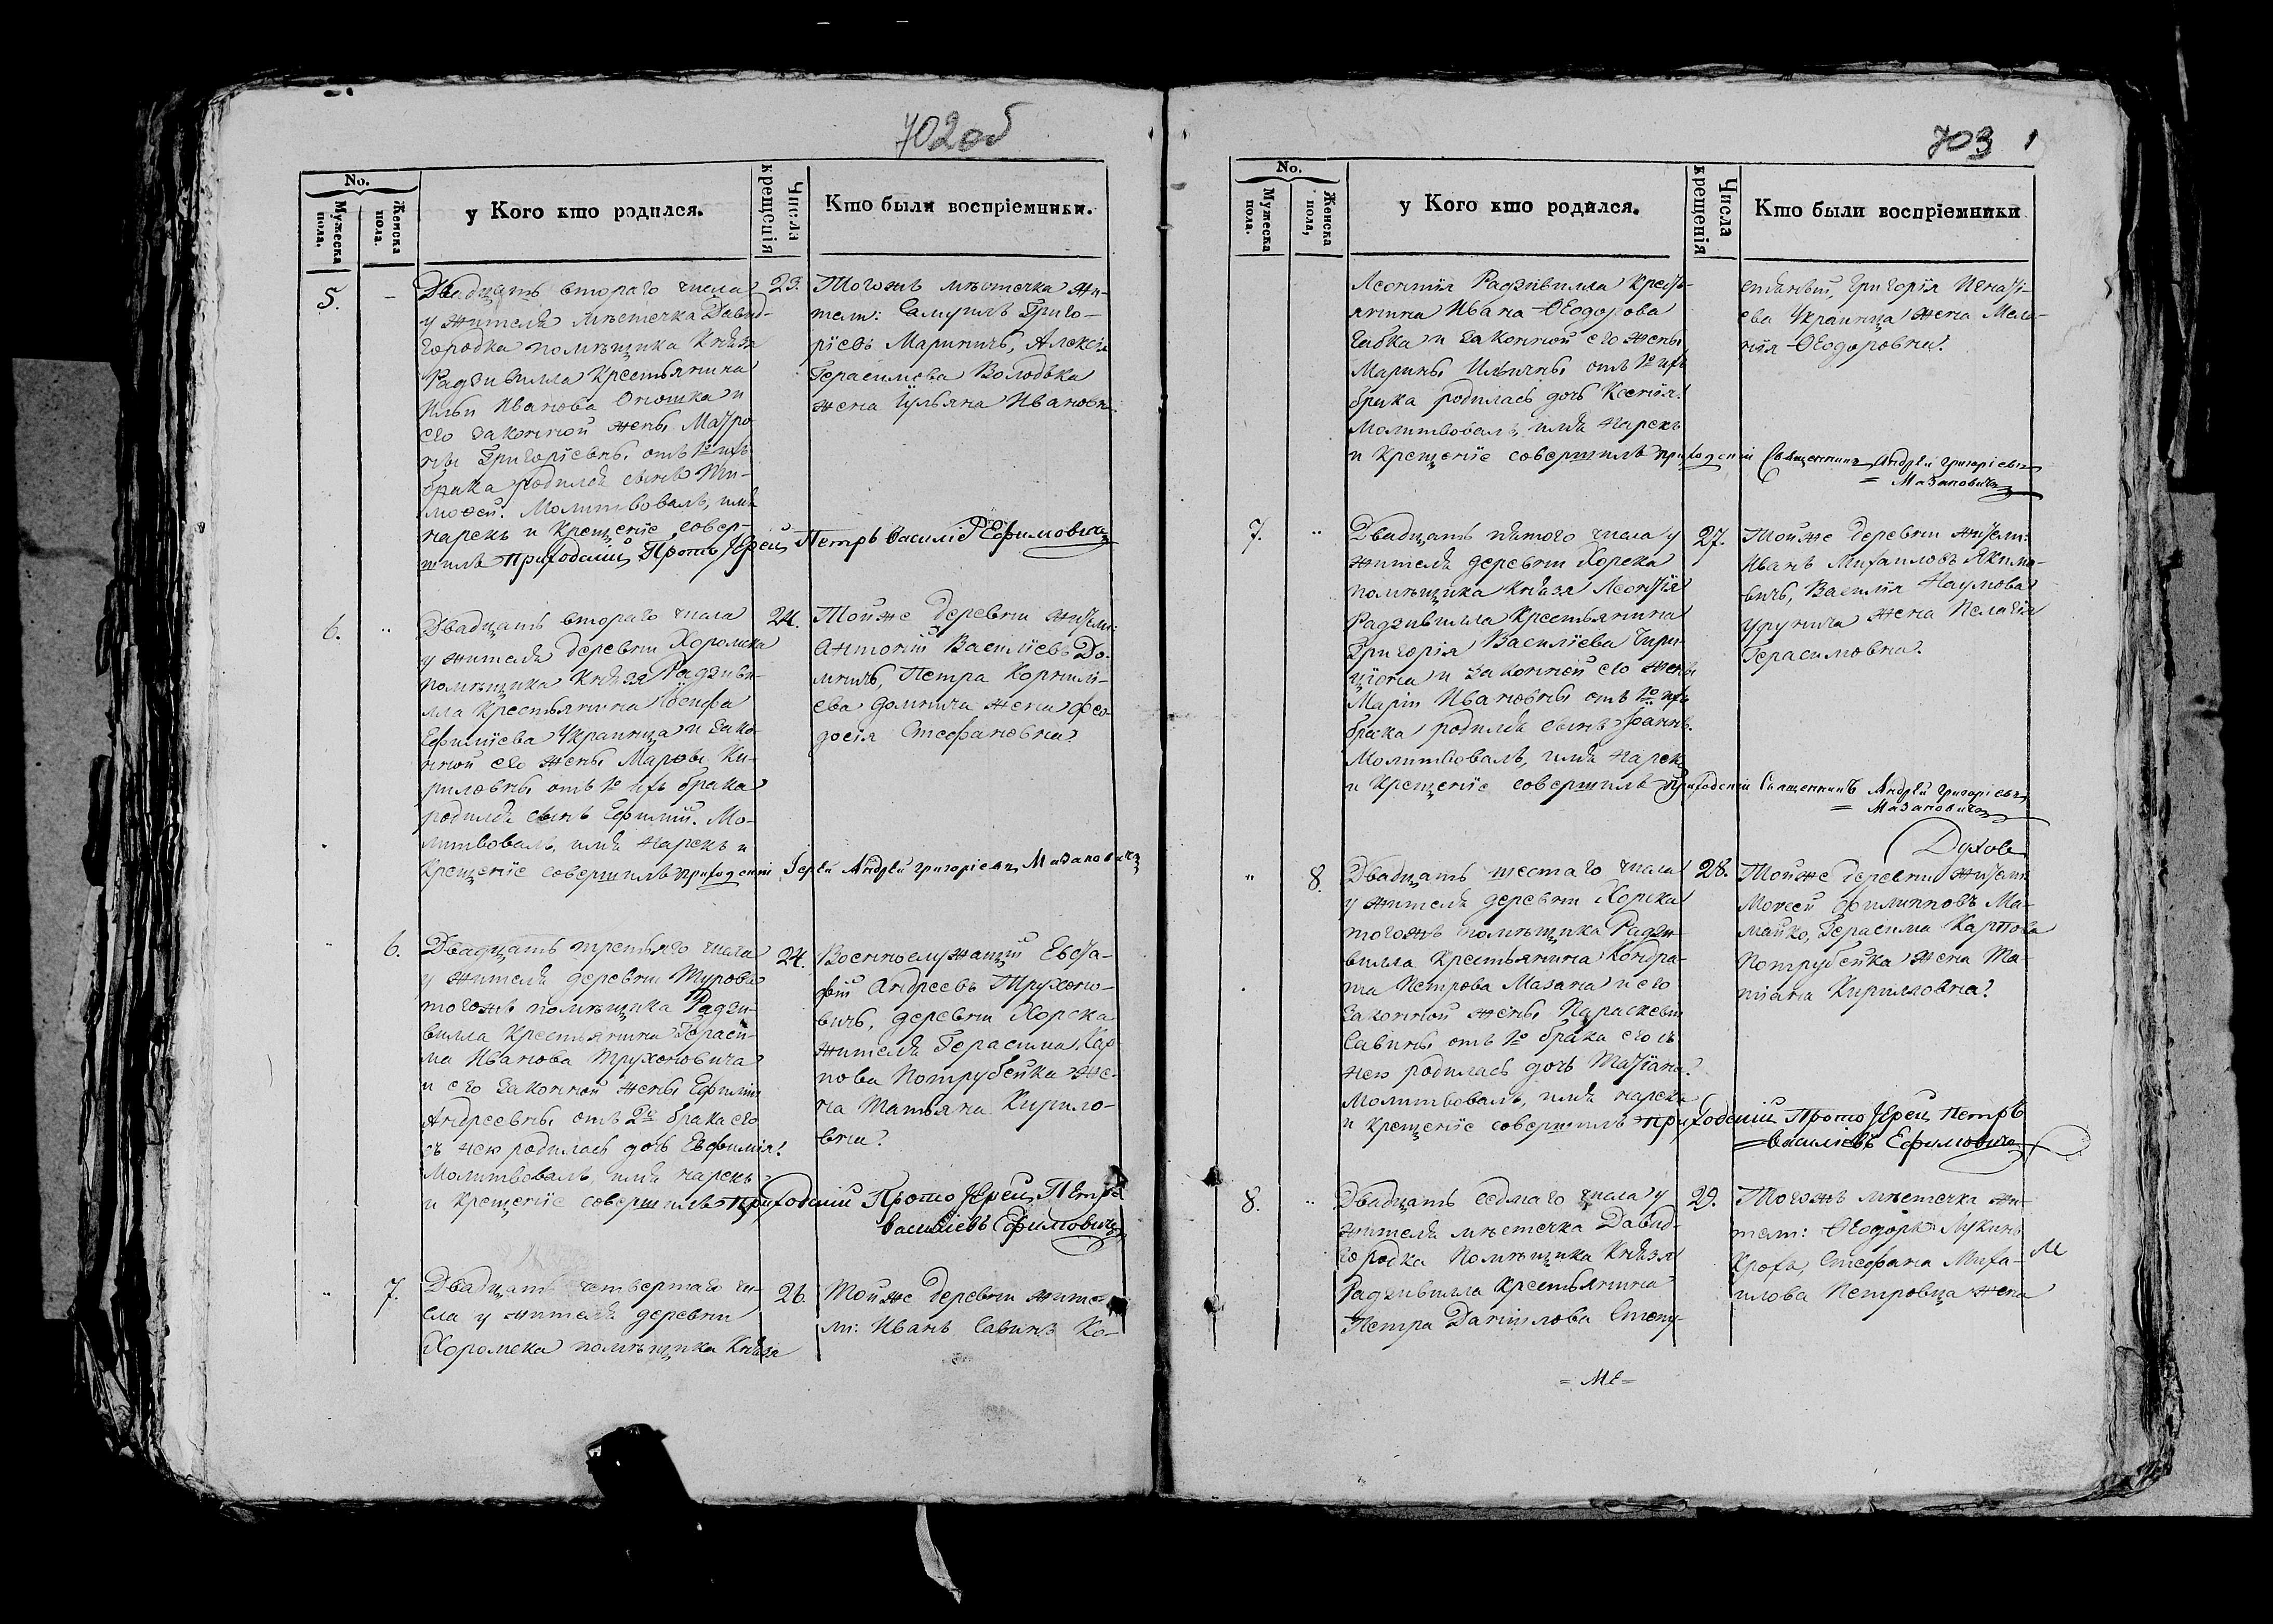 702 об
No.
Мужеска пола.
Женска пола.
у Кого кто родился.
Числа крещенія
Кто были воспріемники.
5.
Двадцать втораго числа
у жителя мѣстечка Давид-
городка помѣщика Князя
Радзивилла Крестьянина
Ильи Иванова Оношка и
его законной жены Матро-
ны Григоріевны отъ 1го ихъ
брака родился сынъ Ти-
моѳей. Молитвовалъ, имя
нарекъ и Крещеніе совер-
шилъ приходскій Прото Іерей Петръ Василіевъ Ефимовичъ
23.
Тогожъ мѣстечка жи-
тели: Самуилъ Григо-
ріевъ Мариничъ, Алексѣя
Герасимова Володька
жена Іульяна Ивановн.
6.
Двадцать втораго числа
у жителя деревни Хоромска
помѣщика Князя Радзиви-
лла Крестьянина Іосифа
Ефиміева Украинца и зако-
нной его жены Марѳы Ки-
риловны отъ 1го ихъ брака
родился сынъ Ефимій. Мо-
литвовалъ, имя нарекъ и
Крещеніе совершилъ приходскій Іерей Андрей Григоріевъ Мазановичъ
24.
Тойже деревни жители:
Антоній Василіевъ До-
мничъ, Петра Корнилі-
ева Домнича жена Фео-
досія Стефановна.
6.
Двадцать третьяго числа
у жителя деревни Турова
тогожъ помѣщика Радзи-
вилла Крестьянина Гераси-
ма Иванова Трухоновича
и его законной жены Ефиміи
Андреевны отъ 2го брака его
съ нею родилась дочь Евфимія.
Молитвовалъ, имя нарекъ
и Крещеніе совершилъ приходскій Прото Іерей Петръ
Василіевъ Ефимовичъ
24.
Военнослужащій Евста-
фій Андреевъ Трухоно-
вичъ, деревни Хорска
жителя Герасима Кар-
пова Потрубейка же-
на Татьяна Кирило-
вна.
7.
Двадцать четвертаго чи-
сла у жителя деревни
Хоромска помѣщика Князя
26.
Тойже деревни жите-
ли: Иванъ Савинъ Ко-
703
No.
Мужеска пола.
Женска пола,
у Кого кто родился.
Числа крещенія
Кто были воспріемники
Леонтія Радзивилла Кресть-
янина Ивана Ѳеодорова
и законной его жены
Марины Ильины отъ 1го ихъ
брака родилась дочь Ксенія.
Молитвовалъ, имя нарекъ
и Крещеніе совершилъ приходскій Священникъ Андрей Григоріевъ
= Мазановичъ
Григорія Игнаті-
ева Украинца жена Мела-
нія Ѳеодоровна.
7.
Двадцать пятого числа у
жителя деревни Хорска
помѣщика Князя Леонтія
Радзивилла Крестьянина
Григорія Василіева
и законной его жены
Маріи Ивановны отъ 1го ихъ
брака родился сынъ Іоаннъ.
Молитвовалъ, имя нарекъ
и Крещеніе совершилъ приходскій Священникъ Андрей Григоріевъ
= Мазановичъ
27.
Тойже деревни жители:
Иванъ Михаиловъ Якимо-
вичъ, Василія Наумова
жена Пелагія
Герасимовна.
Духов
8.
Двадцать шестаго числа
у жителя деревни Хорска
тогожъ помѣщика Радзи-
вилла Крестьянина Кондра-
та Петрова Мазана и его
законной жены Параскевы
Савины отъ 1го брака его съ
нею родилась дочь Татіана.
Молитвовалъ, имя нарекъ
и Крещеніе совершилъ приходскій Прото Іерей Петръ
Василіевъ Ефимовичъ
28.
Тойже деревни жители
Моисей Филипповъ Ма-
майко, Герасима Карпова
Потрубейка жена Та-
тіана Кирилловна.
8.
Двадцать седмаго числа у
жителя мѣстечка Давид-
городка Помѣщика Князя
Радзивилла Крестьянина
Петра Даніилова Степу-
29.
Тогожъ мѣстечка жи-
тели: Ѳеодоръ Лукинъ
Крохъ, Стефана Миха-
илова Петровца жена